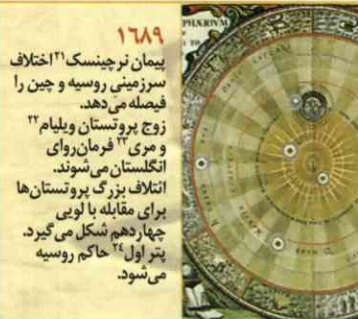 ۱۶۸۹
پیمان نرچینسک۲۱ اختلاف
سرزمینی روسیه و چین را
فیصله می‌دهد.
زوج پروتستان ویلیام۲۲
و مری۲۳ فرمان‌روای
انگلستان می‌شوند.
ائتلاف بزرگ پروتستان‌ها
برای مقابله با لویی
چهاردهم شکل می‌گیرد.
پتر اول۲۴ حاکم روسیه
می‌شود.
PHÆRIVM